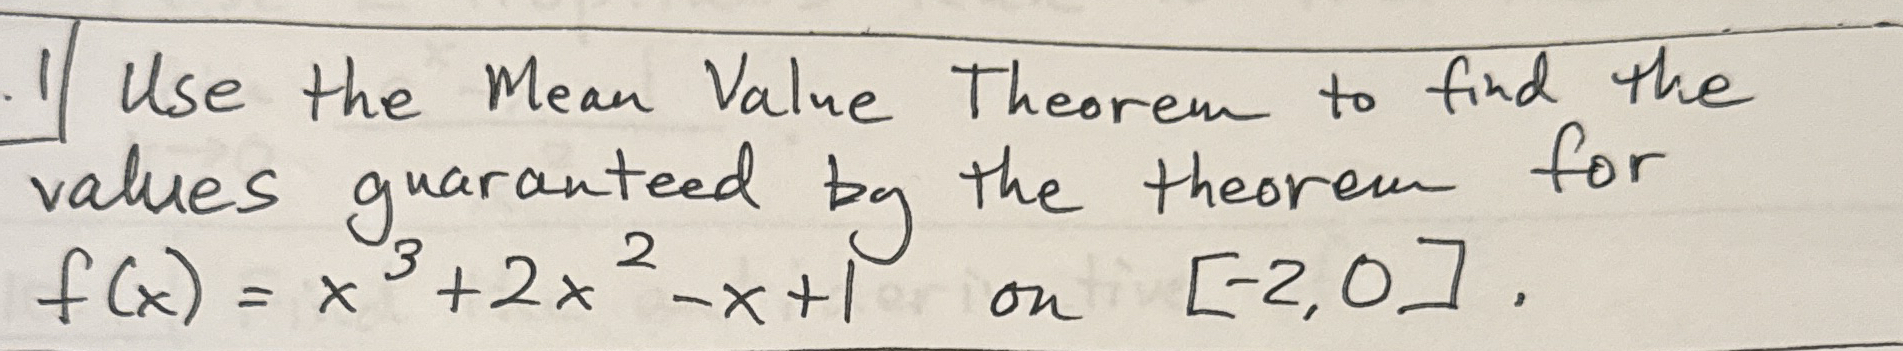 .1 Use the Mean Value Theorem to find the
values guaranteed by the theorem for
f(x) = x³+2x²-x+1 on [-2,0].